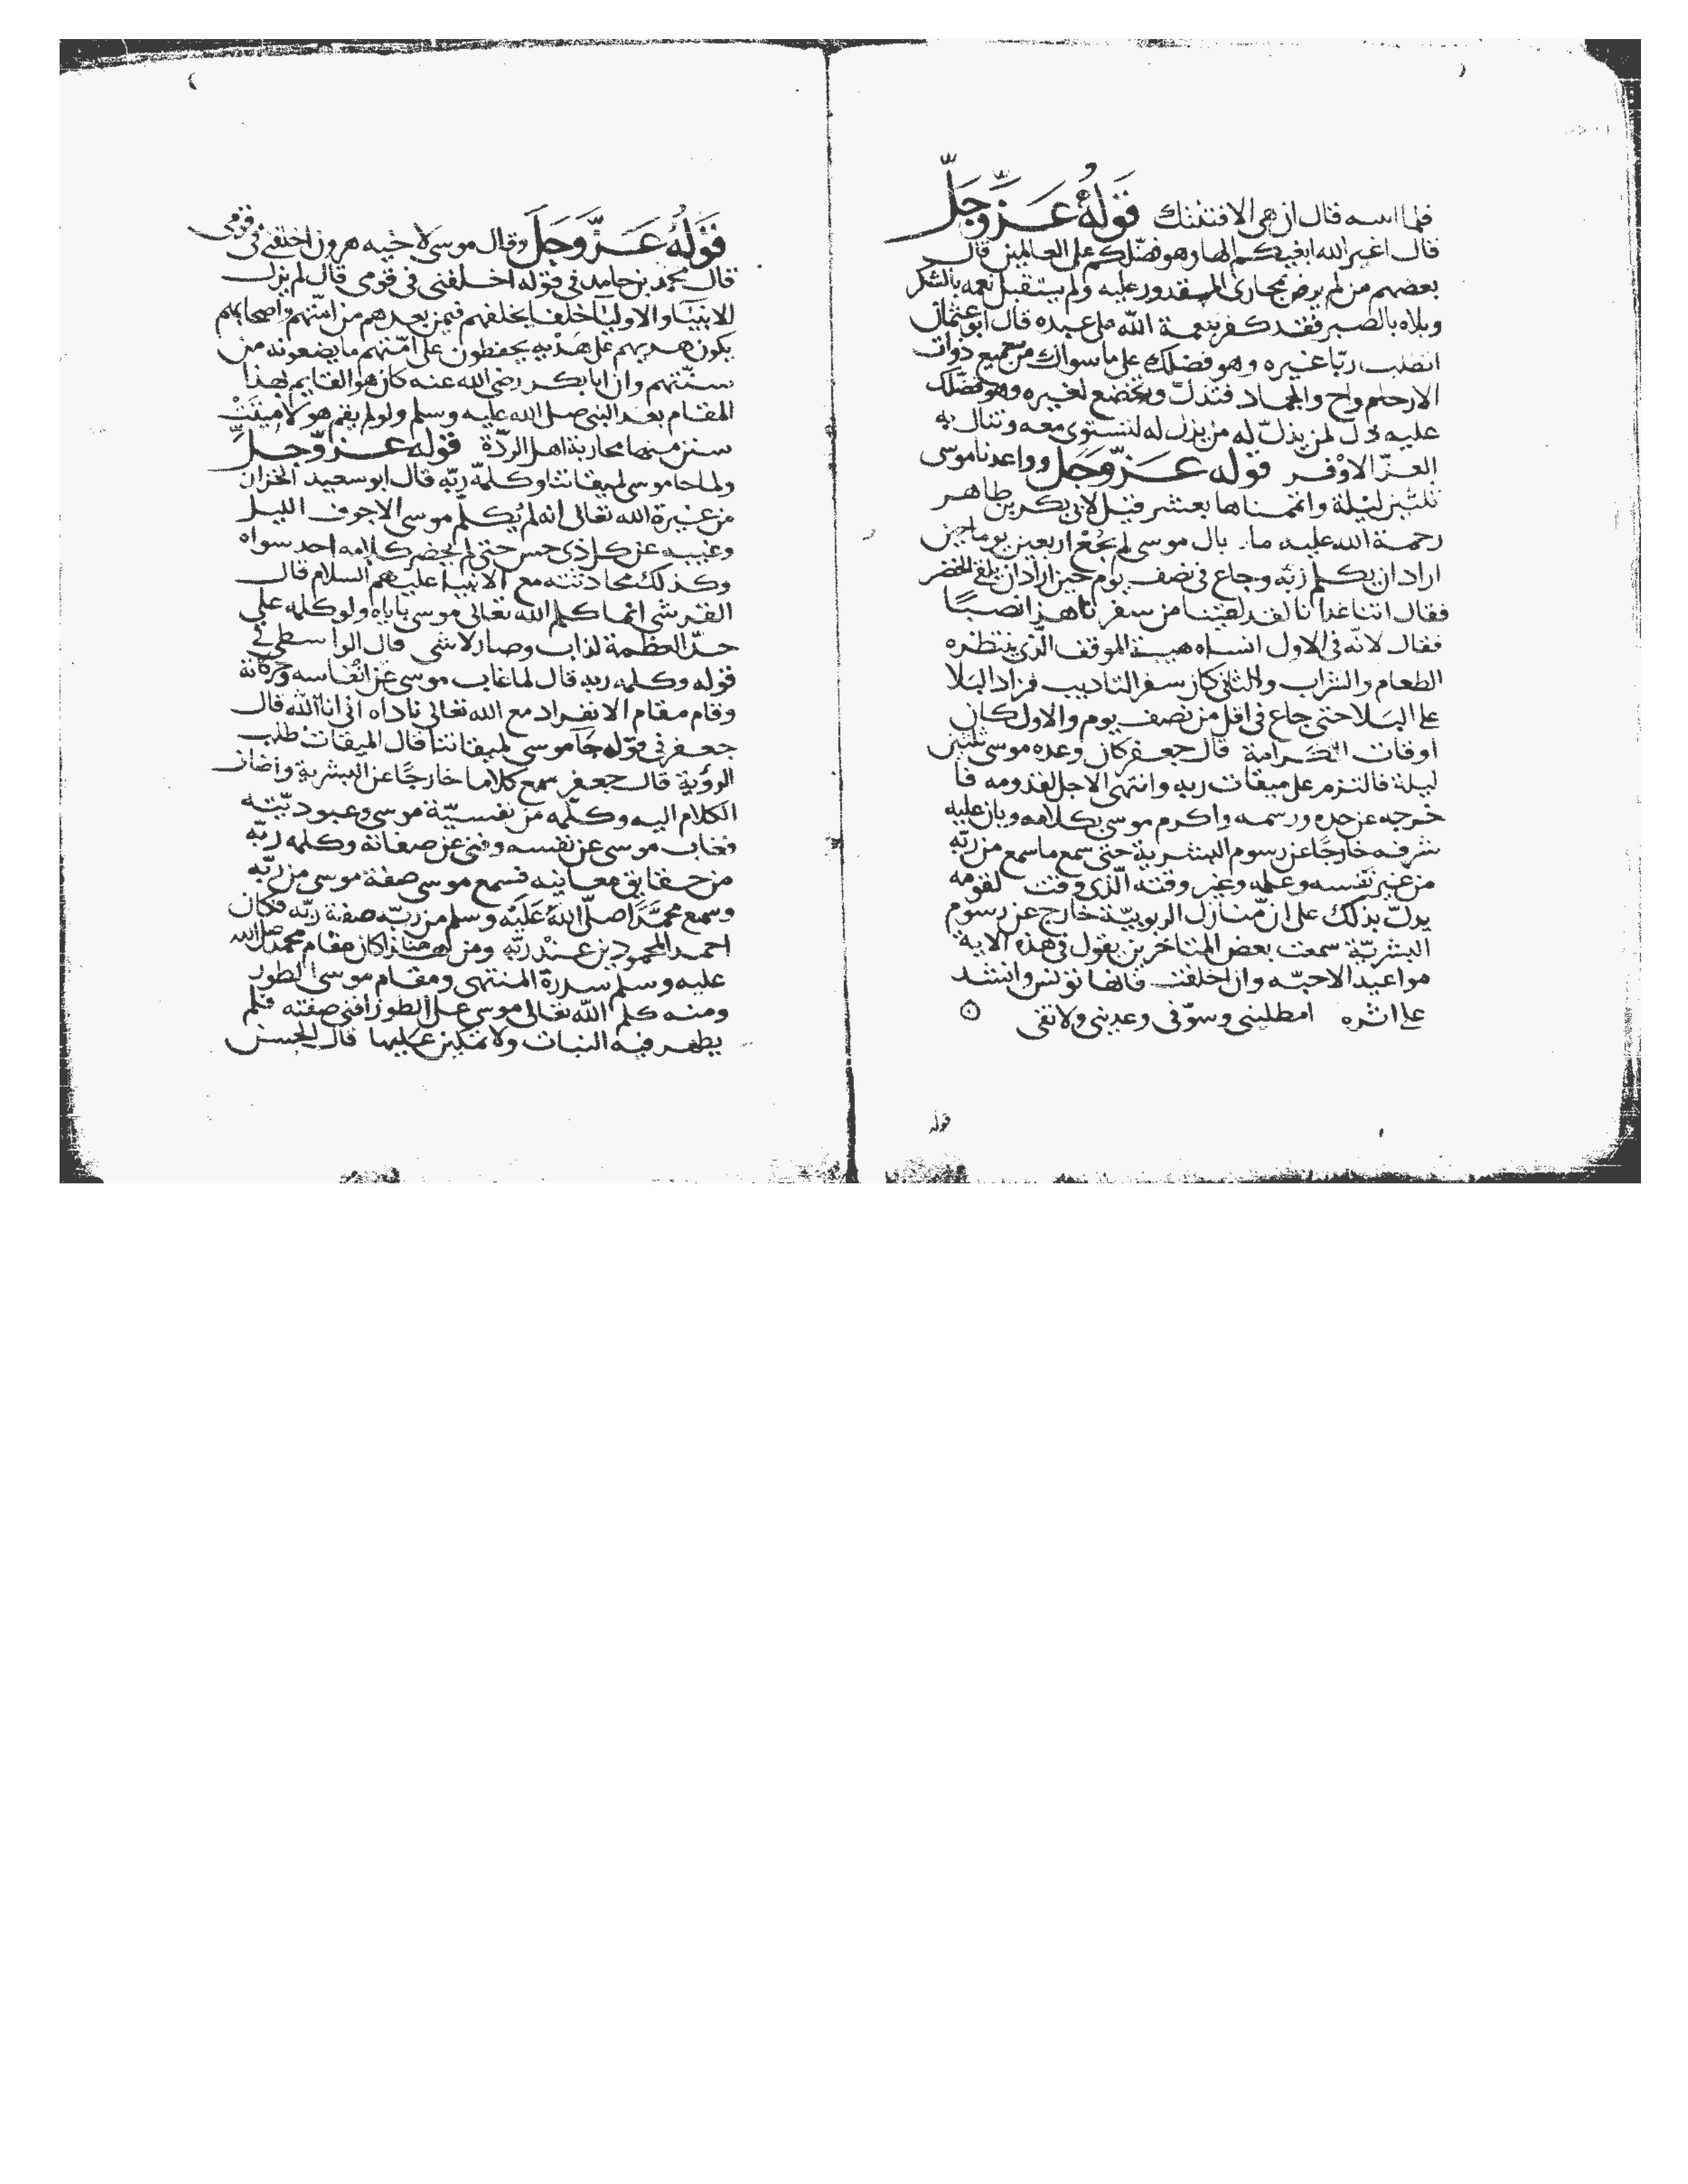 فلما اسه قال ان هى الا فتنتك قَوْلُهُ عَزَّ وَجَلَّ
قال اغير الله ابغيكم الها وهو فضّلكم على العالمين قال
بعضهم من لم يرض بمجارى المقدور عليه ولم يستقبل نعمه بالشكر
وبلاه بالصبر فقد كفر بنعمة اللّه على عبده قال ابو عثمان
اتطلب ربّا غيره وهو فضلك على ما سواك من جميع ذوات
الارحام واح والجماد فتذلّ وتخضع لغيره وهو فضّلك
عليه ذلّ لمن يذلّ له من يزل له لتستوى معه وتنال به
العزّ الاوْفر قوله عَزَّ وَجَلَّ وواعدنا موسى
ثلثين ليْلة واتممناها بعشر قيل لابى بكر بن طاهر
رحمة الله عليه ما بال موسى لم يَجُعْ اربعين يوما حين
اراد ان يكلم ربّه وجاع فى نصف يوم حين اراد ان يلقى الخضر
فقال اتنا غدانا لقد لقينا من سفرنا هذا نصبًا
فقال لانّه فى الاول انساه هيبة الموقف الّذى ينتظره
الطعام والشراب والثانى كان سفر التاديب فزاد البَلا
على البَلا حتى جاع فى اقل من نصف يوم والاول كان
اوقات الكَرامة قال جعفر كان وعده موسى ثلثين
ليلة فالتزم على ميقات ربه وانتهى الاجل لقدومه فا
خرجه عن حده ورسمه واكرم موسى بكلامه وبان عليه
شرفه خارجًا عن رسوم البشرية حتى سمع ما سمع من ربّه
من غير نفسه وعلمه وغير وقته الّذى وقت لقومه
يدلّ بذلك على انّ منازل الربوبيّة خارج عن رسوم
البشريّة سمعت بعض المتاخرين يقول فى هذه الاية
مواعيد الاحبّه وان اخلفت فانها تونس وانشد
على اثره امطلينى وسوّفى وعدينى ولا تفى
قوله
قَوْلُهُ عَزَّ وَجَلَّ وقال موسى لاخيه هرون اخلفنى فى قومى
قال محمد بن حامد فى قوله اخلفنى فى قومى قال لم يزل
للانبيَا والاوليَا خلفا يخلفهم فيمن بعدهم من امّتهم واصحابهم
يكون هديهم على هَدْيه يحفظون على امّتهم ما يضعونه من
سنّتهم وان ابا بكر رضى الله عنه كان هو القايم بهذا
المقام بعد النبى صلى الله عليه وسلم ولو لم يقم هو لامِيتَتْ
سنن منها محاربة اهل الردّة قوله عزّ وّجلّ
ولما جا موسى لميقاتنا وكلمهّ ربّه قال ابو سعيد الخزان
من غيرة الله تعالى انه لم يُكلّم موسى الا جوف الليل
وغيبه عن كل ذى حس حتى لم يحضر كلامه احد سواه
وكذلك محادثته مع الانبيا عليهم السلام قال
القرشى انما كلم الله تعالى موسى باياه ولو كلمه على
حدّ العظمة لذاب وصار لا شى قال الواسطى فى
قوله وكلمه ربه قال لما غاب موسى عن انْفاسه وحركاته
وقام مقام الانفراد مع الله تعالى ناداه انى انا اللّه قال
جعفر فى قوْله جَا موسى لميقاتنا قال الميقات طلب
الروْية قال جعفر سمع كلاما خارجًا عن البشرية واضاف
الكلام اليه وكلّمه من نفسيّة موسى وعبوديّته
فغاب موسى عن نفسه وفنى عن صفاته وكلمه ربّه
من حقايق معانيه فسمع موسى صفة موسى من ربّه
وسمع محمَّدًا صلّى اللّهُ عَلَيْه وسلم من ربّه صفة ربّه فكان
احمد المحمودين عنْد ربّه ومن هذا كان مقام محمد صلى الله
عليه وسلم سدرة المنتهى ومقام موسى الطور
ومنه كلم اللّه تعالى موسى على الطور افنى صفته فلم
يظهر فيه النبات ولا تمكين عليها قال الحسن